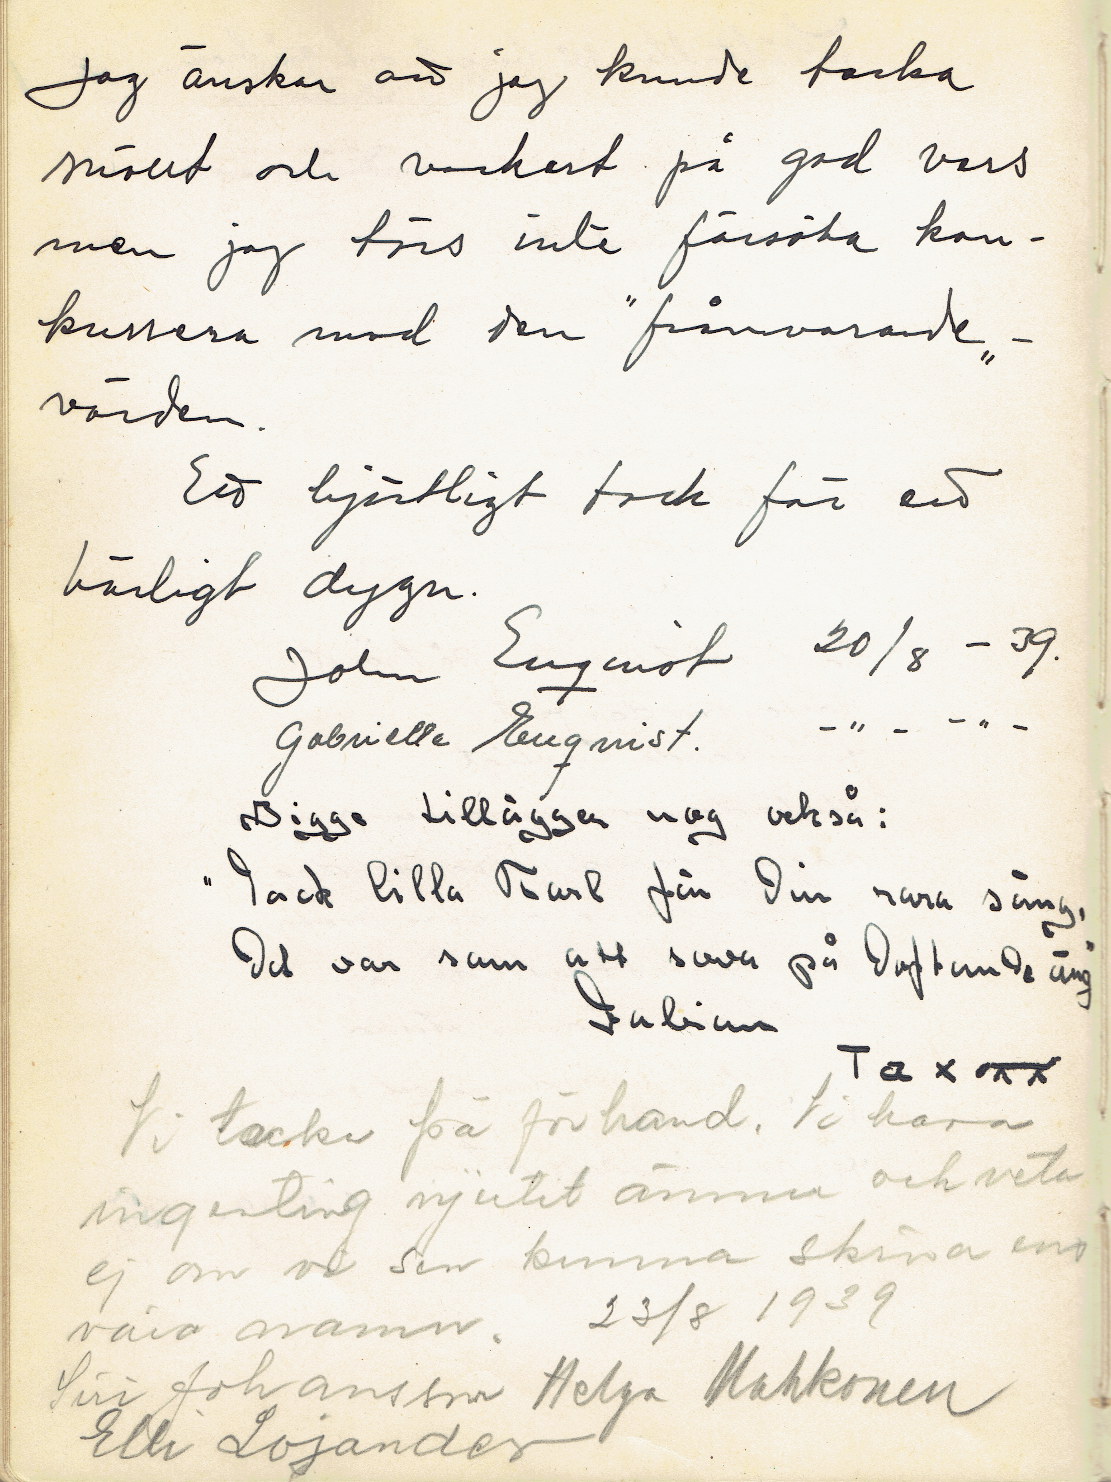 Jag önskar att jag kunde tacka
snällt och vackert på god vers
men jag törs inte försöka kon-
kurrera med den "frånvarande" -
värden.
Ett hjärtligt tack för ett
härligt dygn.
John Enqvist 20/8 - 39.
Gabrielle Enqvist. - " - - " -
Sigge tillägger nog också:
"Tack lilla Karl för Din rara säng,
Det var som att sova på Doftande äng"
Fabian
Tax
Vi tacka på förhand. Vi hava
ingenting njutit ännu och veta
ej om vi sen kunna skriva ens
våra namn. 23/8 1939
Siri Johansson Helga Mahkonen
Elli Lojander